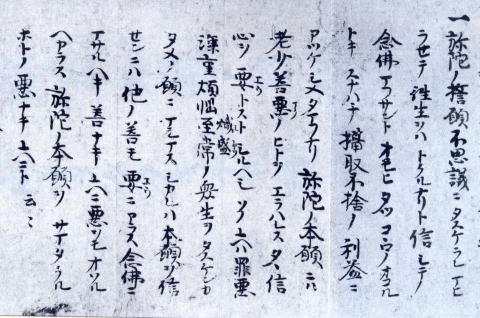 一 弥陀ノ誓願不思議ニタスケラレマヒ
ラセテ往生ヲハトクルナリト信シテ
念佛マフサントオモヒタツコヽロノオコル
トキスナハチ攝取不捨ノ利益ニ
アツケシメタマフナリ弥陀ノ本願ニハ
老少善悪ノヒトヲエラハレスタヽ信
心ヲ要トストシルヘシソノユヘハ罪悪
熾盛
深重煩悩至常ノ衆生ヲタスケンカ
タメノ願ニマシマスシカレハ本願ヲ信
センニハ他ノ善モ要ニアラス念佛ニ
マサルヘキ善ナキユヘニ悪ヲモオソル
ヘカラス弥陀ノ本願ヲサマタクル
ホトノ悪ナキユヘニト云々